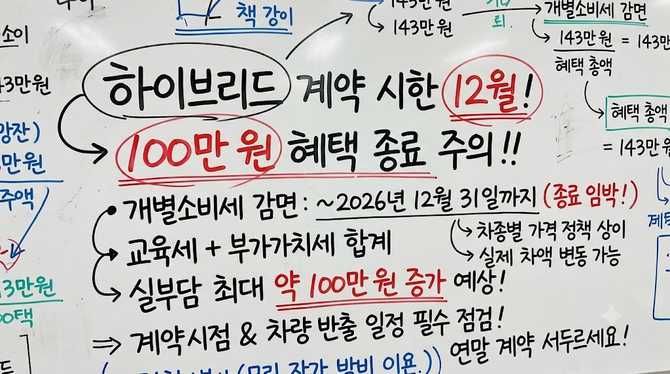 책 강이
143만 원
143만 원
개별소비세 감면
143만 원 = 143만
혜택 총액
혜택 총액
= 143만
하이브리드 계약 시한 12월!
100만 원 혜택 종료 주의!!
• 개별소비세 감면 : ~2026년 12월 31일까지 (종료 임박!)
교육세 + 부가가치세 합계
차종별 가격 정책 상이
실제 차액 변동 가능
실부담 최대 약 100만 원 증가 예상!
⇒ 계약시점 & 차량 반출 일정 필수 점검!
연말 계약 서두르세요!